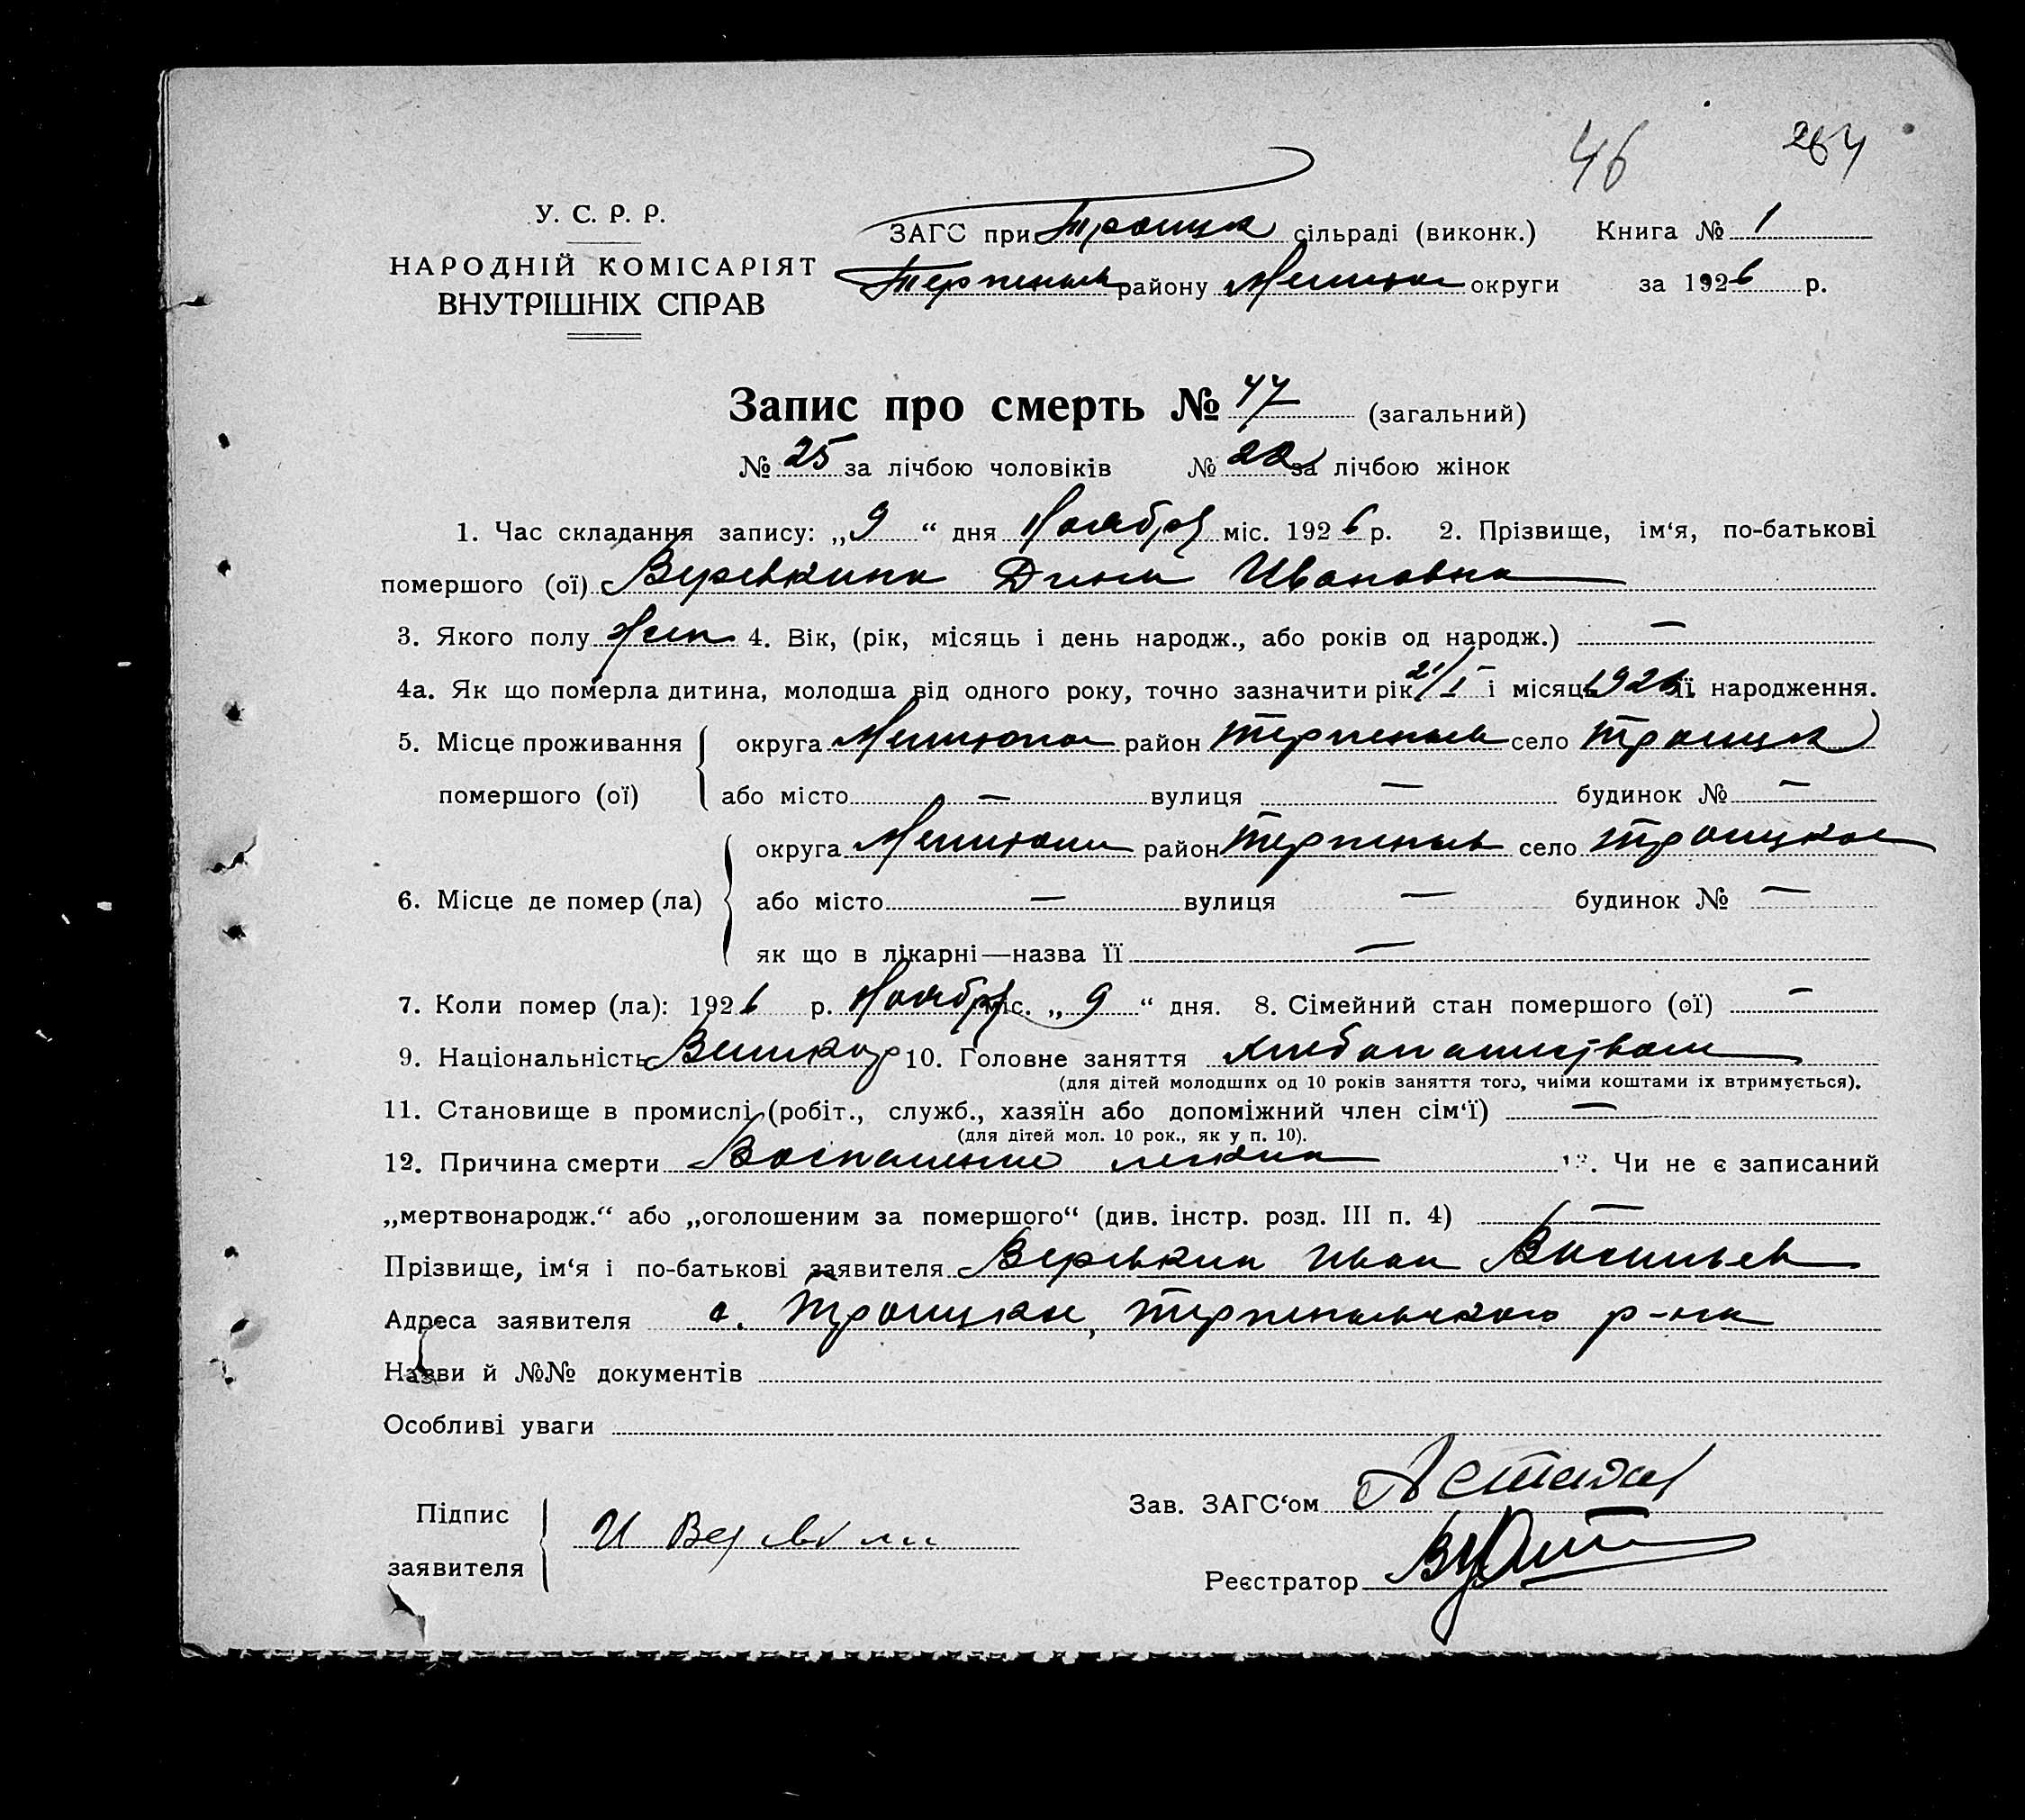 46 264
У. С. Р. Р.
НАРОДНІЙ КОМІСАРІЯТ
ВНУТРІШНІХ СПРАВ
ЗАГС при Троицк сільраді (виконк.) Книга № 1
Терпеньев району Мелитоп округи за 1926 р.
Запис про смерть № 47 (загальний)
№ 25 за лічбою чоловіків № 22 за лічбою жінок
1. Час складання запису: „9“ дня Ноября міс. 1926 р. 2. Прізвище, ім‘я, по-батькові
помершого (ої) Веревкина Дина Ивановна
3. Якого полу жен 4. Вік, (рік, місяць і день народж., або років од народж.) —
4а. Як що померла дитина, молодша від одного року, точно зазначити рік 21/I і місяць 1926 її народження.
5. Місце проживання округа Мелитопол район Терпеньев село Троицк
помершого (ої) або місто — вулиця — будинок № —
округа Мелитопол район Терпеньев село Троицкое
6. Місце де помер (ла) або місто — вулиця — будинок № —
як що в лікарні—назва її —
7. Коли помер (ла): 1926 р. Ноября міс. „9“ дня. 8. Сімейний стан помершого (ої) —
9. Національність Великор 10. Головне заняття хлебопашеством
(для дітей молодших од 10 років заняття того, чиїми коштами їх втримується).
11. Становище в промислі (робіт., служб., хазяїн або допоміжний член сім‘ї) —
(для дітей мол. 10 рок., як у п. 10).
12. Причина смерти Воспаление легких 13. Чи не є записаний
„мертвонародж.“ або „оголошеним за помершого“ (див. інстр. розд. III п. 4) —
Прізвище, ім‘я і по-батькові заявителя Веревкин Иван Васильев
Адреса заявителя с. Троицкое, Терпеньевского р-на
Назви й №№ документів
Особливі уваги
Підпис
заявителя И Веревкин
Зав. ЗАГС‘ом
Реєстратор